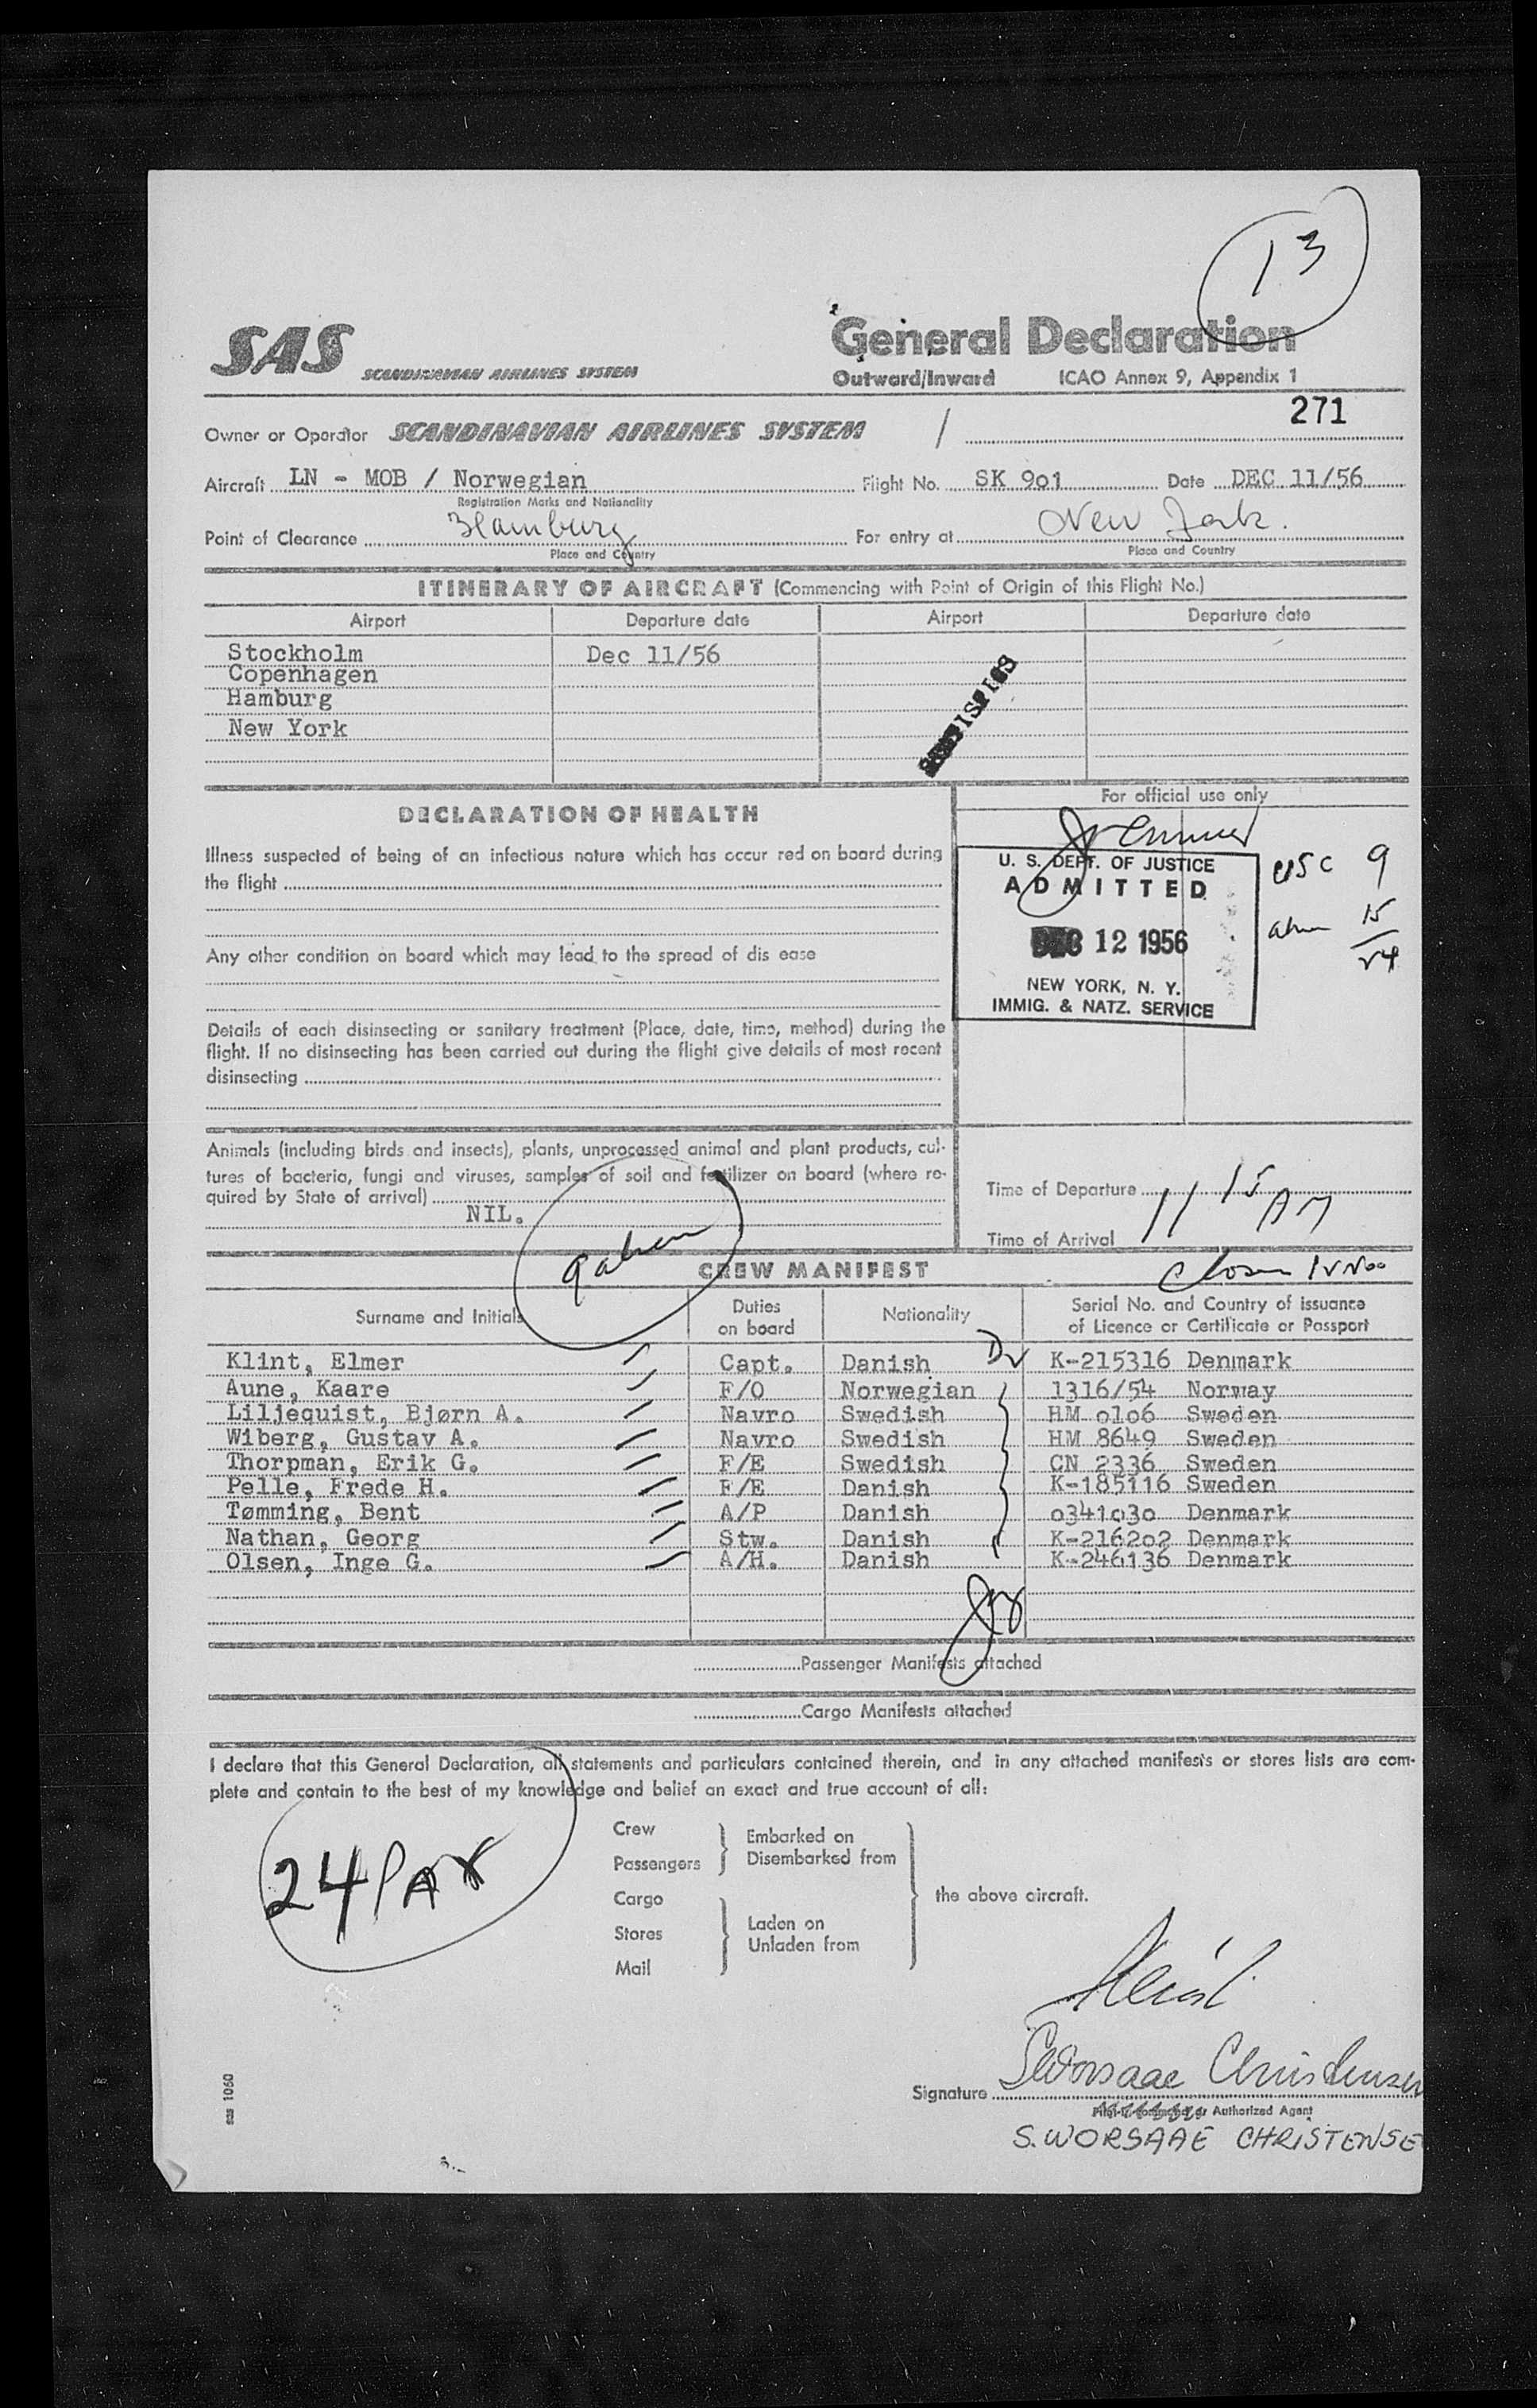 13
SAS SCANDINAVIAN AIRLINES SYSTEM
General Declaration
Outward/Inward ICAO Annex 9, Appendix 1
271
Owner or Operator SCANDINAVIAN AIRLINES SYSTEM /
Aircraft LN - MOB / Norwegian Flight No. SK 901 Date DEC 11/56
Registration Marks and Nationality
Point of Clearance Hamburg For entry at New York.
Place and Country Place and Country
ITINERARY OF AIRCRAFT (Commencing with Point of Origin of this Flight No.)
Airport Departure date Airport Departure date
Stockholm Dec 11/56
Copenhagen
Hamburg
New York
DECLARATION OF HEALTH
For official use only
Illness suspected of being of an infectious nature which has occur red on board during
the flight
Any other condition on board which may lead to the spread of dis ease
Details of each disinsecting or sanitary treatment (Place, date, time, method) during the
flight. If no disinsecting has been carried out during the flight give details of most recent
disinsecting
U. S. DEPT. OF JUSTICE
ADMITTED
DEC 12 1956
NEW YORK, N. Y.
IMMIG. & NATZ. SERVICE
USC 9
15
24
Animals (including birds and insects), plants, unprocessed animal and plant products, cul-
tures of bacteria, fungi and viruses, samples of soil and fertilizer on board (where re-
quired by State of arrival)
NIL.
Time of Departure
Time of Arrival 11 15 AM
CREW MANIFEST
Surname and Initials Duties on board Nationality Serial No. and Country of issuance
of Licence or Certificate or Passport
Klint, Elmer Capt. Danish K-215316 Denmark
Aune, Kaare F/O Norwegian 1316/54 Norway
Liljequist, Bjørn A. Navro Swedish HM 0106 Sweden
Wiberg, Gustav A. Navro Swedish HM 8649 Sweden
Thorpman, Erik G. F/E Swedish CN 2336 Sweden
Pelle, Frede H. F/E Danish K-185116 Sweden
Tømming, Bent A/P Danish 0341030 Denmark
Nathan, Georg Stw. Danish K-216202 Denmark
Olsen, Inge G. A/H. Danish K-246136 Denmark
Passenger Manifests attached
Cargo Manifests attached
I declare that this General Declaration, all statements and particulars contained therein, and in any attached manifests or stores lists are com-
plete and contain to the best of my knowledge and belief an exact and true account of all:
24 PAX
Crew
Passengers
Embarked on
Disembarked from
Cargo
Stores
Mail
Laden on
Unladen from
the above aircraft.
Signature S Worsaae Christensen
or Authorized Agent
S. WORSAAE CHRISTENSE
sas 1060